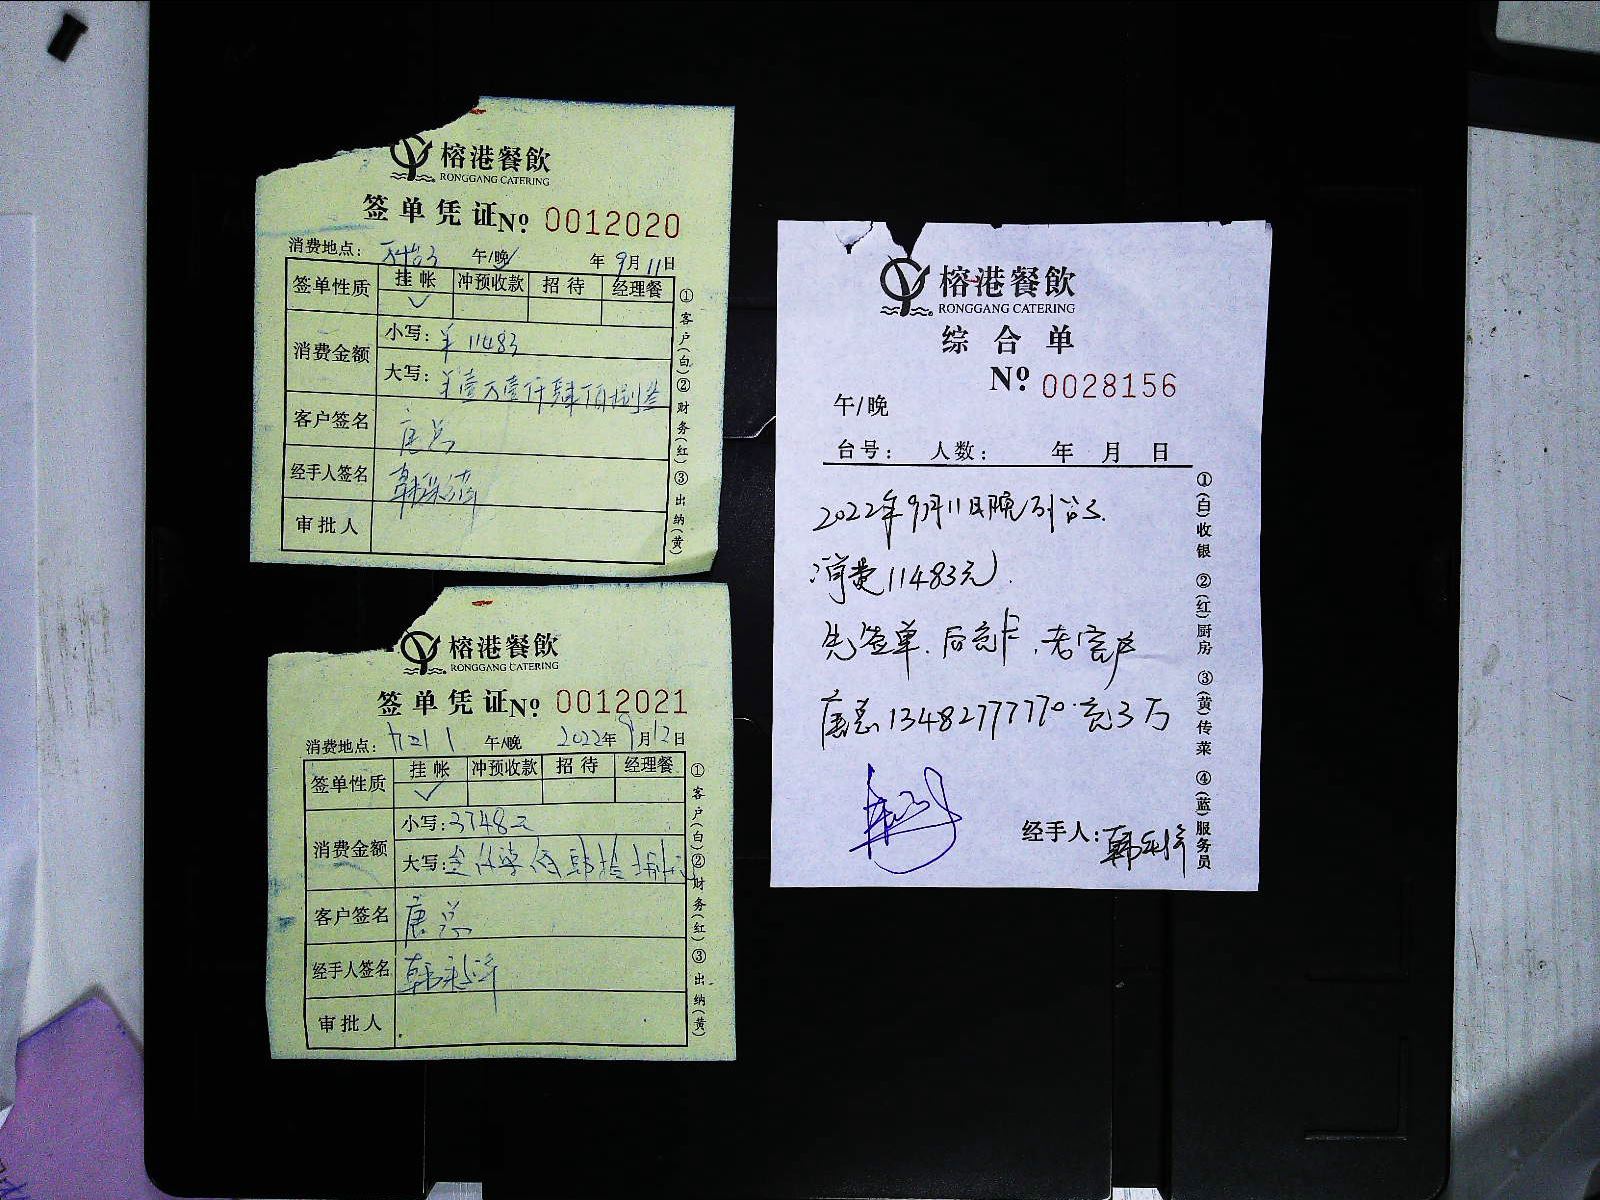 榕港餐飲
RONGGANG CATERING
签单凭证No. 0012020
消费地点： 午/晚 年9月11日
签单性质 挂帐 冲预收款 招待 经理餐
✓
消费金额 小写：¥11483
大写：¥壹万壹仟肆佰捌叁
客户签名 唐总
经手人签名 韩
审批人
①客户(白)②财务(红)③出纳(黄)
榕港餐飲
RONGGANG CATERING
签单凭证No. 0012021
消费地点： 午/晚 2022年9月12日
签单性质 挂帐 冲预收款 招待 经理餐
✓
消费金额 小写：3748元
大写：
客户签名 唐总
经手人签名 韩
审批人
①客户(白)②财务(红)③出纳(黄)
榕港餐飲
RONGGANG CATERING
综合单
No. 0028156
午/晚
台号： 人数： 年 月 日
2022年9月11日晚
消费11483元.
先签单.后充卡.老客户
唐总13482777770.充3万
经手人：韩
①(白)收银 ②(红)厨房 ③(黄)传菜 ④(蓝)服务员